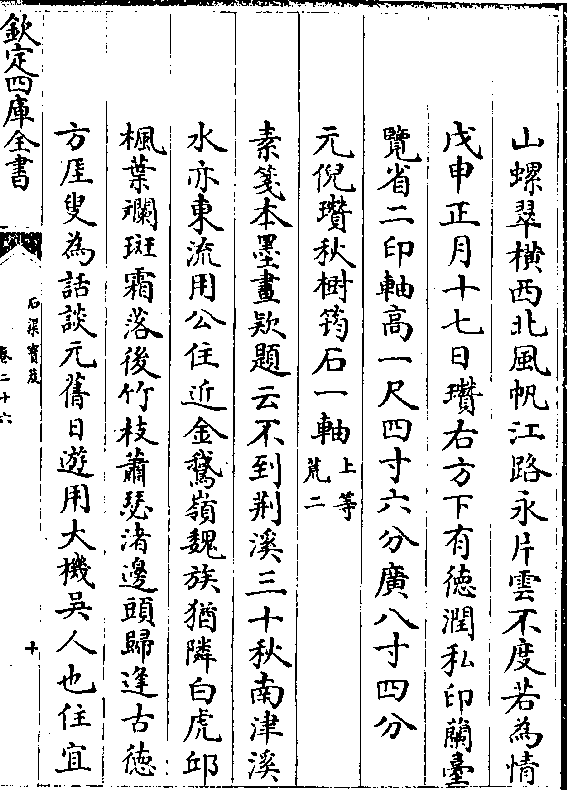 山螺翠横西北風帆江路永片雲不度若為情
戊申正月十七日瓚右方下有徳潤私印蘭臺
覽省二印軸高一尺四寸六分廣八寸四分
元倪瓚秋樹筠石一軸上等荒二
素箋本墨畫欵題云不到荆溪三十秋南津溪
水亦東流用公住近金鵞嶺魏族猶隣白虎邱
楓葉斓斑霜落後竹枝蕭瑟渚邊頭歸逢古徳
方厓叟為話談元舊日遊用大機吳人也住宜
欽定四庫全書
石渠寳笈
卷二十六
十